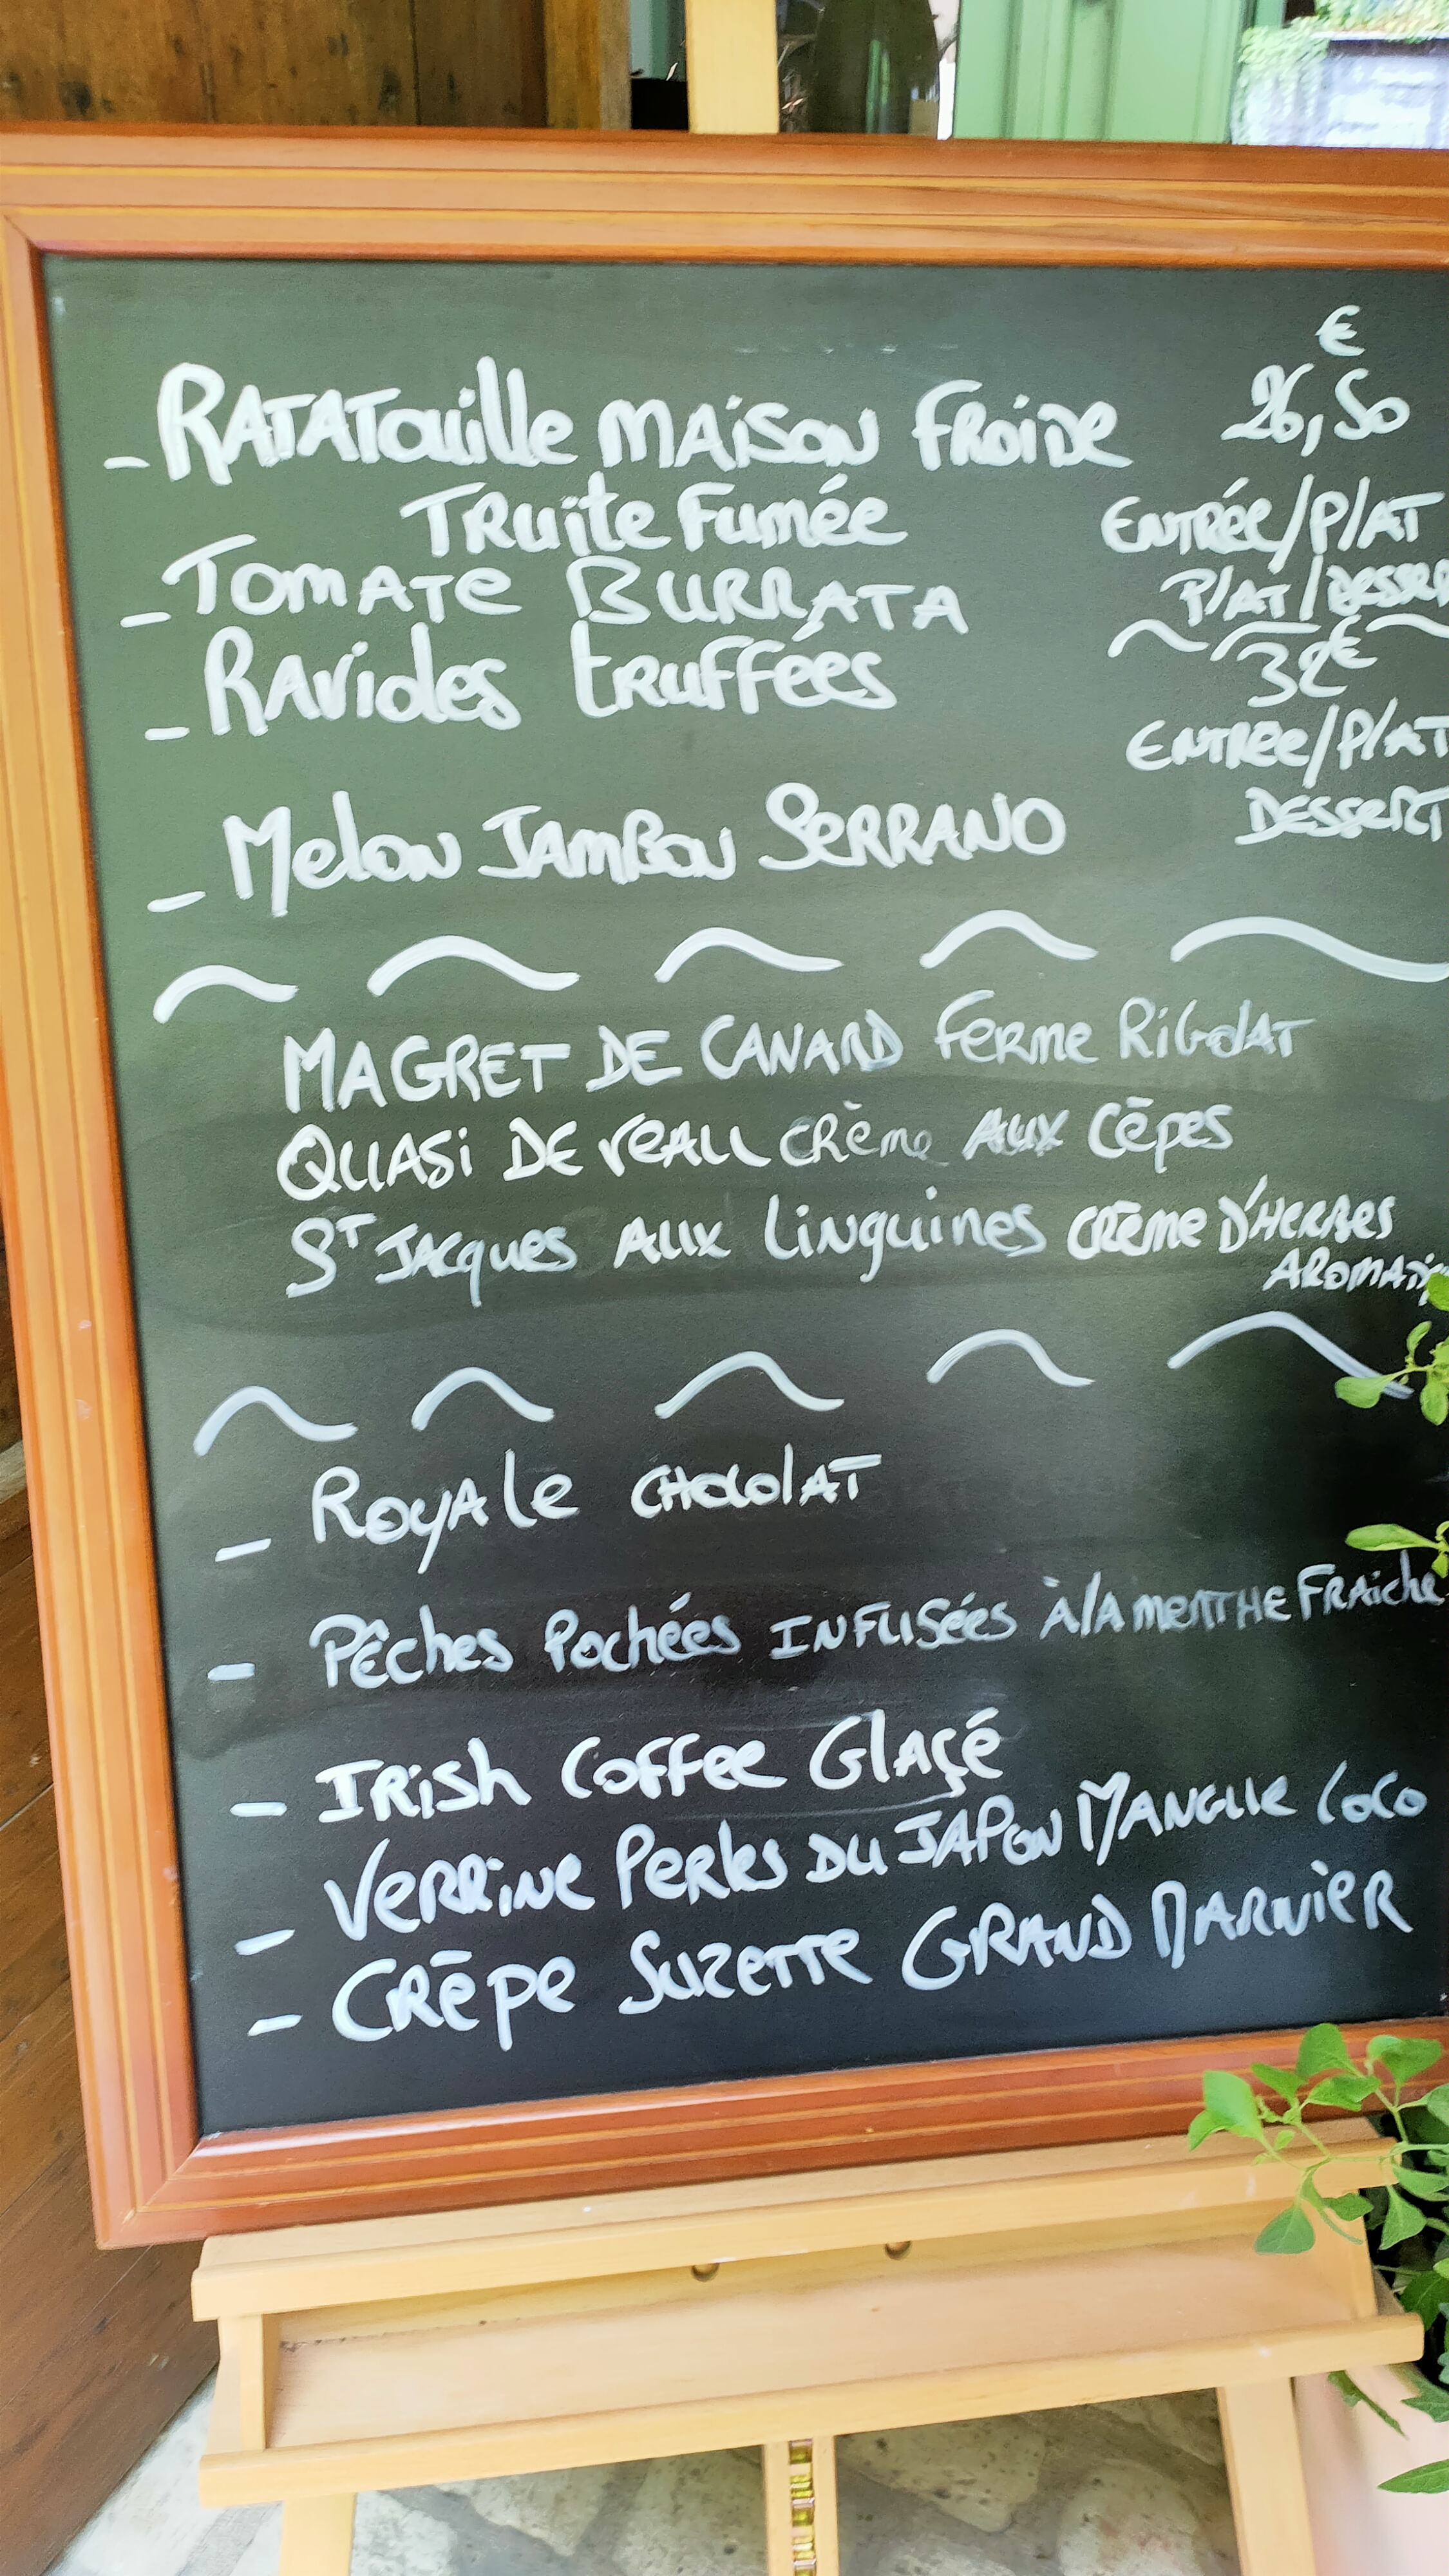 €
- RATATouille MAiSON FROiDe 26,50
TRuite Fumée ENTRÉe/PlAT
- TomATe BURRATA PlAT/Desser
- RAVioles tRuFFées 32€
ENTRÉe/PlAT
- Melon JAMBON SeRRANO DESSeRT
MAGRET DE CANARD FeRme RiGolAT
QUASi DE VeAU CRème AUX CÊpes
ST JAcques AUX linguines CRÈme D'HeRBes
AROMATi
- RoyAle CHocolAT
- PÊches Pochées INFUSées À lA menTHE FRAiche
- IRiSh CoFFee GlAçé
- VeRRiNe PeRles DU JAPoN MANGUe CoCo
- CRÊpe SuzeTTe GRAND MARNieR